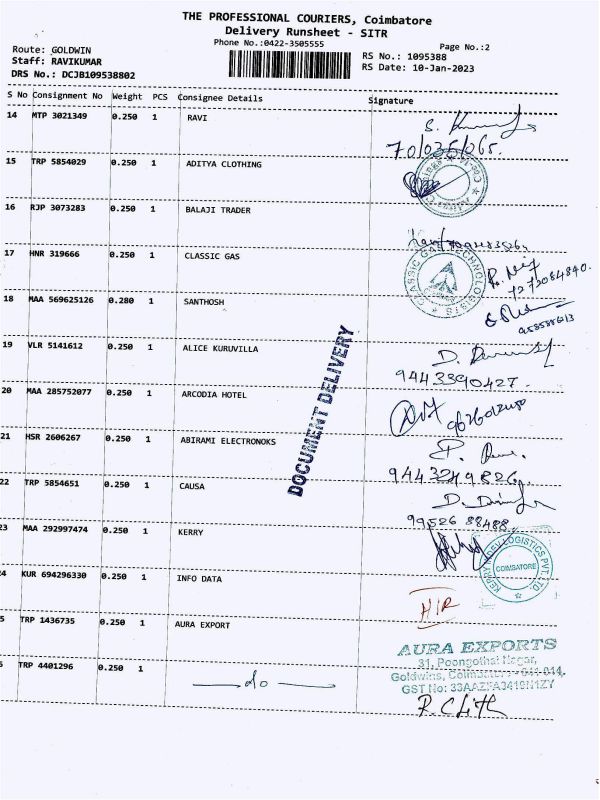 THE PROFESSIONAL COURIERS, Coimbatore
Delivery Runsheet - SITR
Phone No.:0422-3505555
Page No.:2
Route: GOLDWIN
Staff: RAVIKUMAR
DRS No.: DCJB109538802
RS No.: 1095388
RS Date: 10-Jan-2023
S No Consignment No Weight PCS Consignee Details Signature
14 MTP 3021349 0.250 1 RAVI
15 TRP 5854029 0.250 1 ADITYA CLOTHING
16 RJP 3073283 0.250 1 BALAJI TRADER
17 HNR 319666 0.250 1 CLASSIC GAS
CLASSIC GAS TECHNOLOGISTS
18 MAA 569625126 0.280 1 SANTHOSH
19 VLR 5141612 0.250 1 ALICE KURUVILLA
9443390427.
DOCUMENT DELIVERY
20 MAA 285752077 0.250 1 ARCODIA HOTEL
21 HSR 2606267 0.250 1 ABIRAMI ELECTRONOKS
22 TRP 5854651 0.250 1 CAUSA
99526 88488
23 MAA 292997474 0.250 1 KERRY
COIMBATORE
24 KUR 694296330 0.250 1 INFO DATA
5 TRP 1436735 0.250 1 AURA EXPORT
AURA EXPORTS
31, Poongothai Nagar,
Goldwins, Coimbatore - 641 014.
6 TRP 4401296 0.250 1
-do-